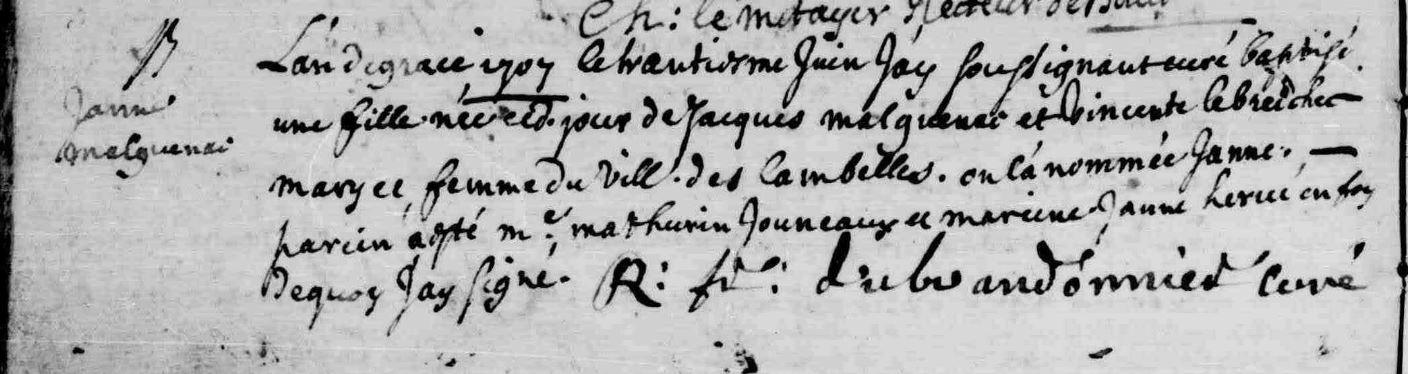 Ch: le metayer Recteur de
B
Janne
malquenai
L'an de grace 1707 le trantiesme Juin Jay soussignant curé baptisé
une fille née ced. jour de Jacques malquenai et vincente le breichec
mary et femme du vill. des lambelles. on la nommée Janne.
parein a esté me. mathurin Jouneaux et mareine Janne hervé en foy
dequoy Jay signé. R: fr: curé